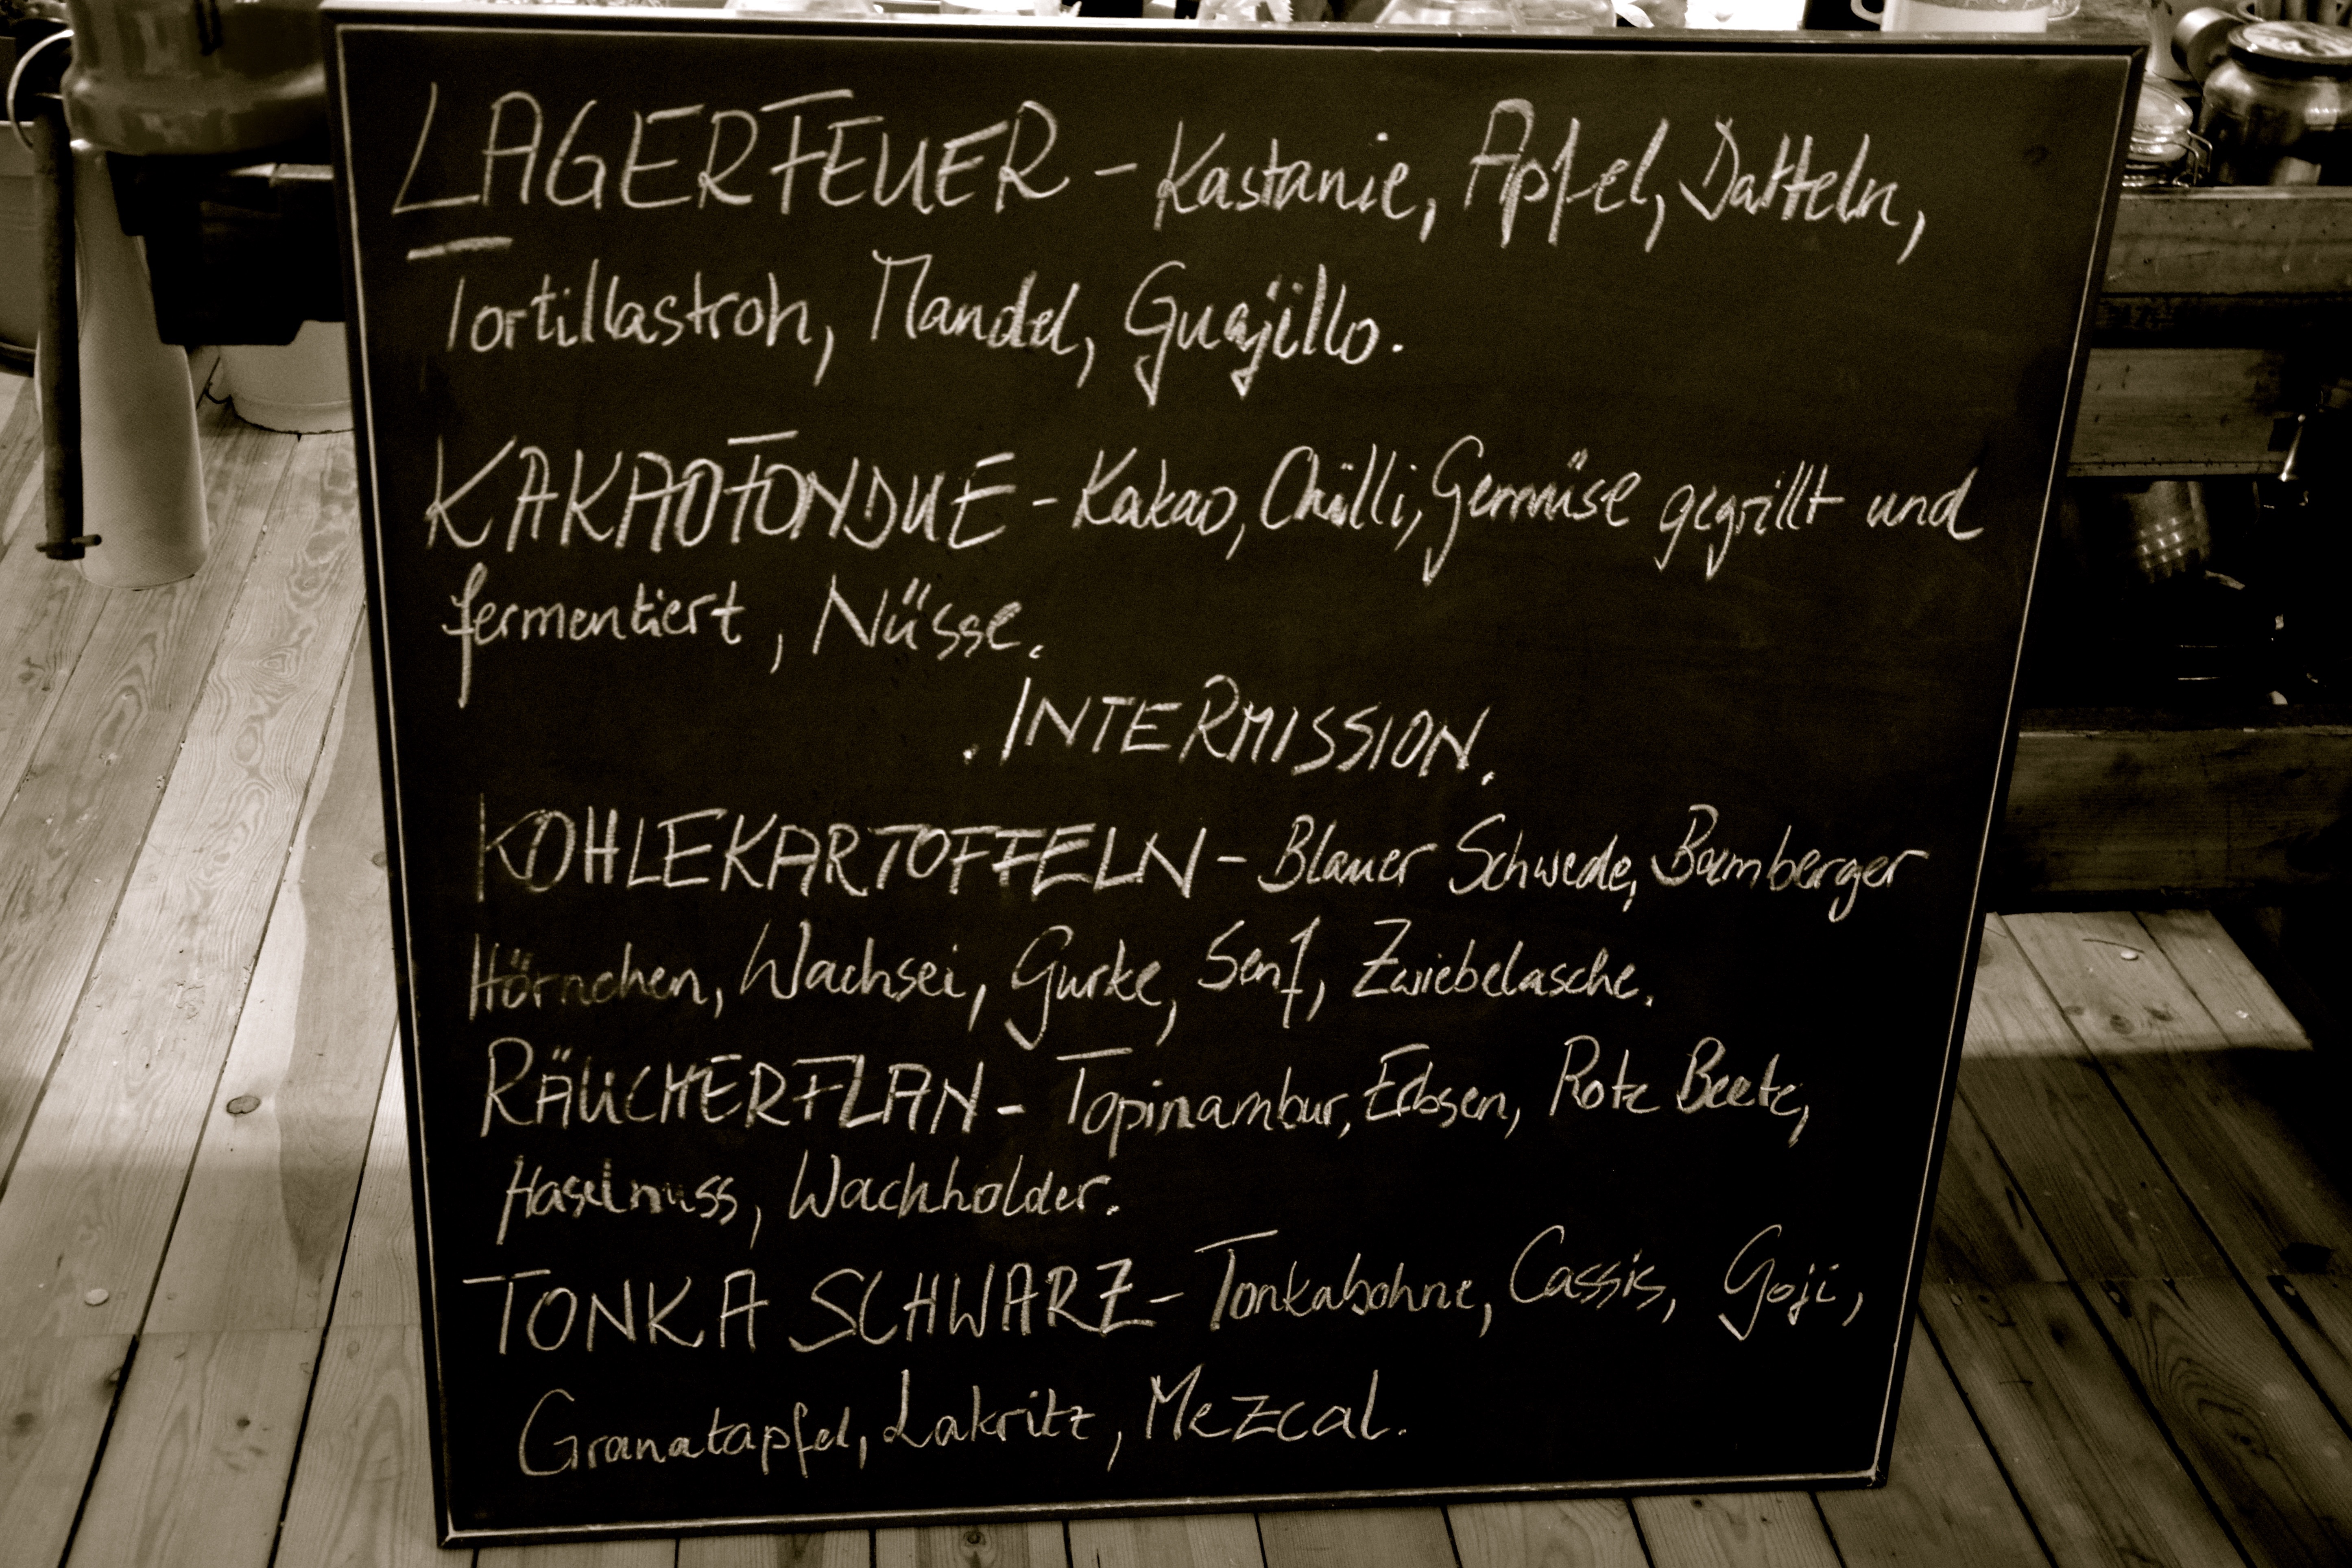 LAGERFEUER - Kastanie, Apfel, Datteln,
Tortillastroh, Mandel, Guajillo.
KAKAOFONDUE - Kakao, Chilli, Gemüse gegrillt und
fermentiert, Nüsse.
. INTERMISSION.
KOHLEKARTOFFELN - Blauer Schwede, Bamberger
Hörnchen, Wachsei, Gurke, Senf, Zwiebelasche.
RÄUCHERFLAN - Topinambur, Erbsen, Rote Beete,
Haselnuss, Wachholder.
TONKA SCHWARZ - Tonkabohne, Cassis, Goji,
Granatapfel, Lakritz, Mezcal.